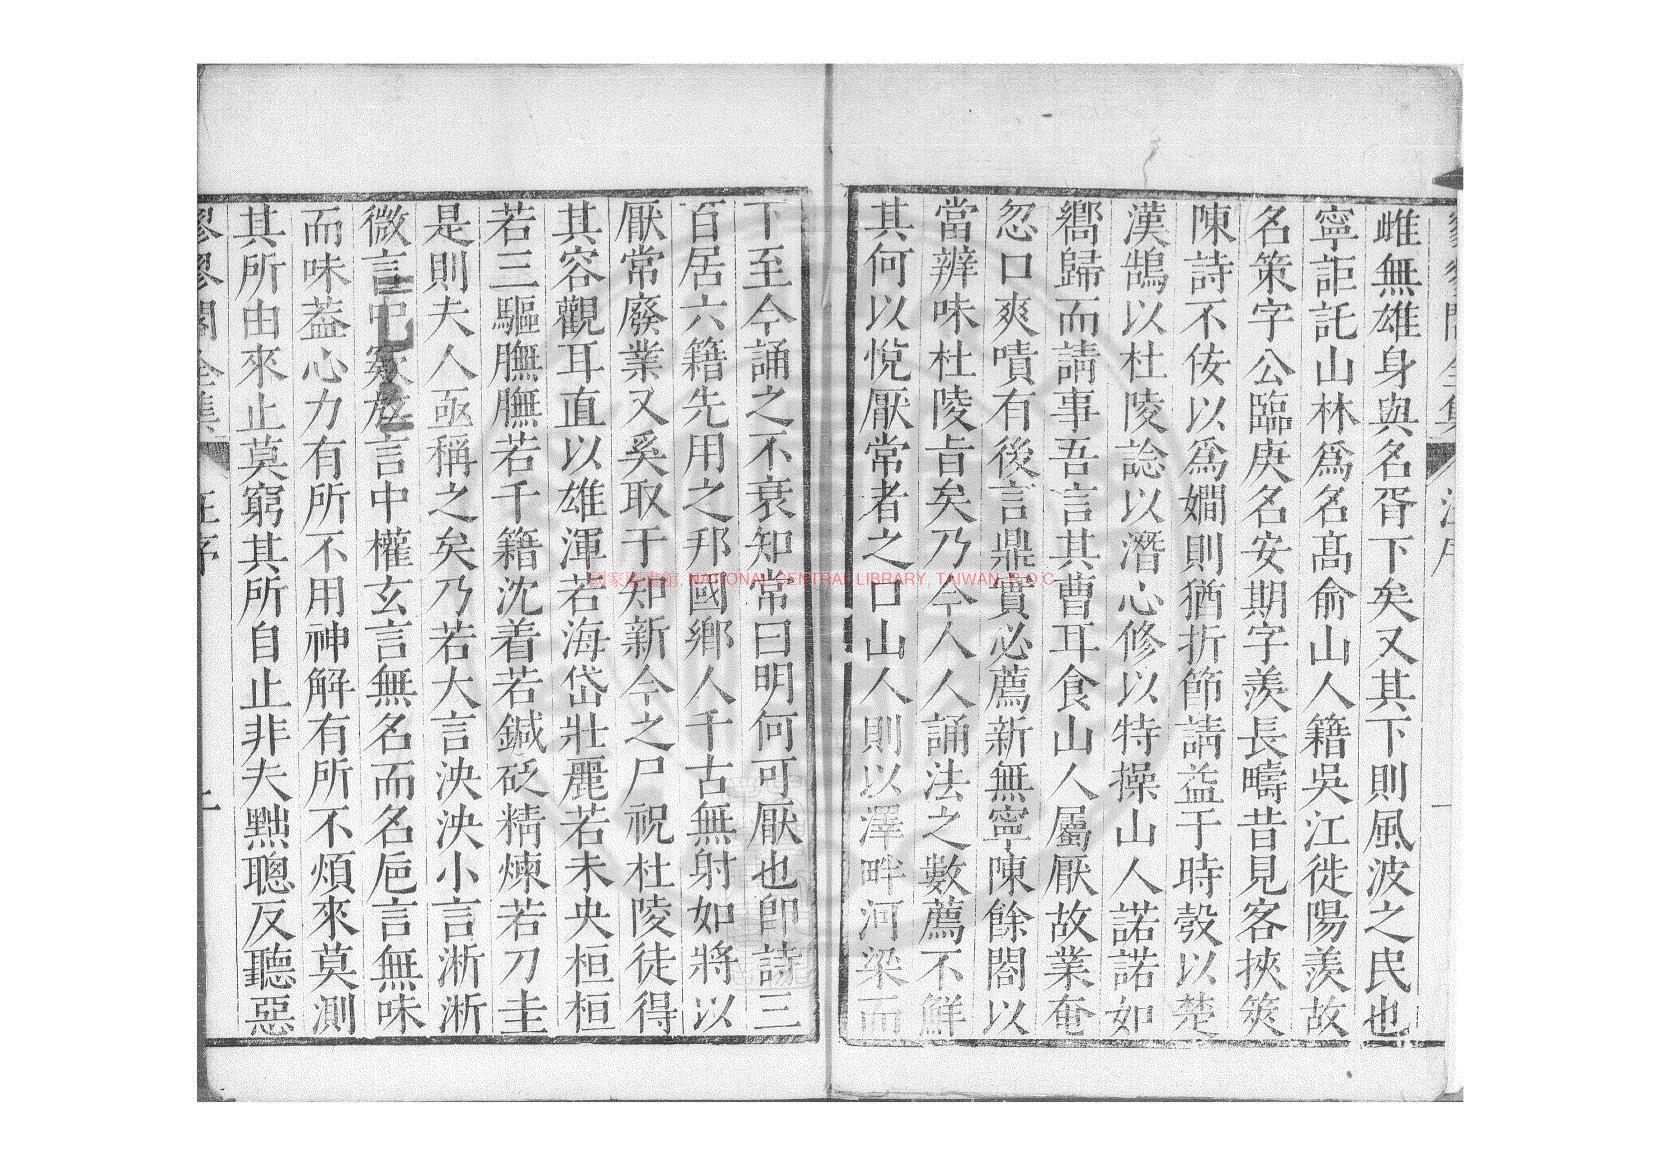 雌無雄身與名胥下矣又其下則風波之民也
寧詎託山林爲名髙俞山人籍吳江徙陽羨故
名策字公臨庚名安期字羨長疇昔見客挾筴
陳詩不佞以爲嫺則猶折節請益于時彀以楚
漢鵠以杜陵諗以潛心修以特操山人諾諾如
嚮歸而請事吾言其曹耳食山人屬厭故業奄
忽口爽嘖有後言鼎實必薦新無寧陳餘閤以
當辨味杜陵旨矣乃今人人誦法之數薦不鮮
其何以悅厭常者之口山人則以澤畔河梁而
下至今誦之不衰知常曰明何可厭也卽詩三
百居六籍先用之邦國鄉人千古無射如將以
厭常廢業又奚取于知新今之尸祝杜陵徒得
其容觀耳直以雄渾若海岱壯麗若未央桓桓
若三驅膴膴若千籍沈着若鍼砭精煉若刀圭
是則夫人亟稱之矣乃若大言泱泱小言淅淅
微言中窾放言中權玄言無名而名巵言無味
而味蓋心力有所不用神解有所不煩來莫測
其所由來止莫窮其所自止非夫黜聰反聽惡
寥寥閣全集
汪序